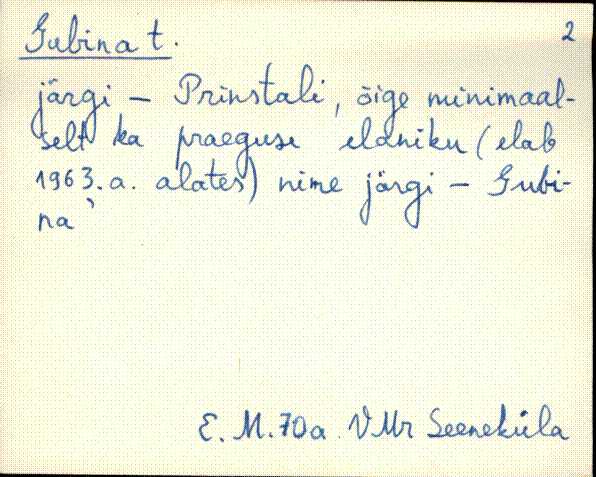 Gubina t. 2
järgi - Prinstali, õige minimaal-
selt ka praeguse elaniku (elab
1963. a. alates) nime järgi - Gubi-
na'
E. M. 70a. VMr Seeneküla